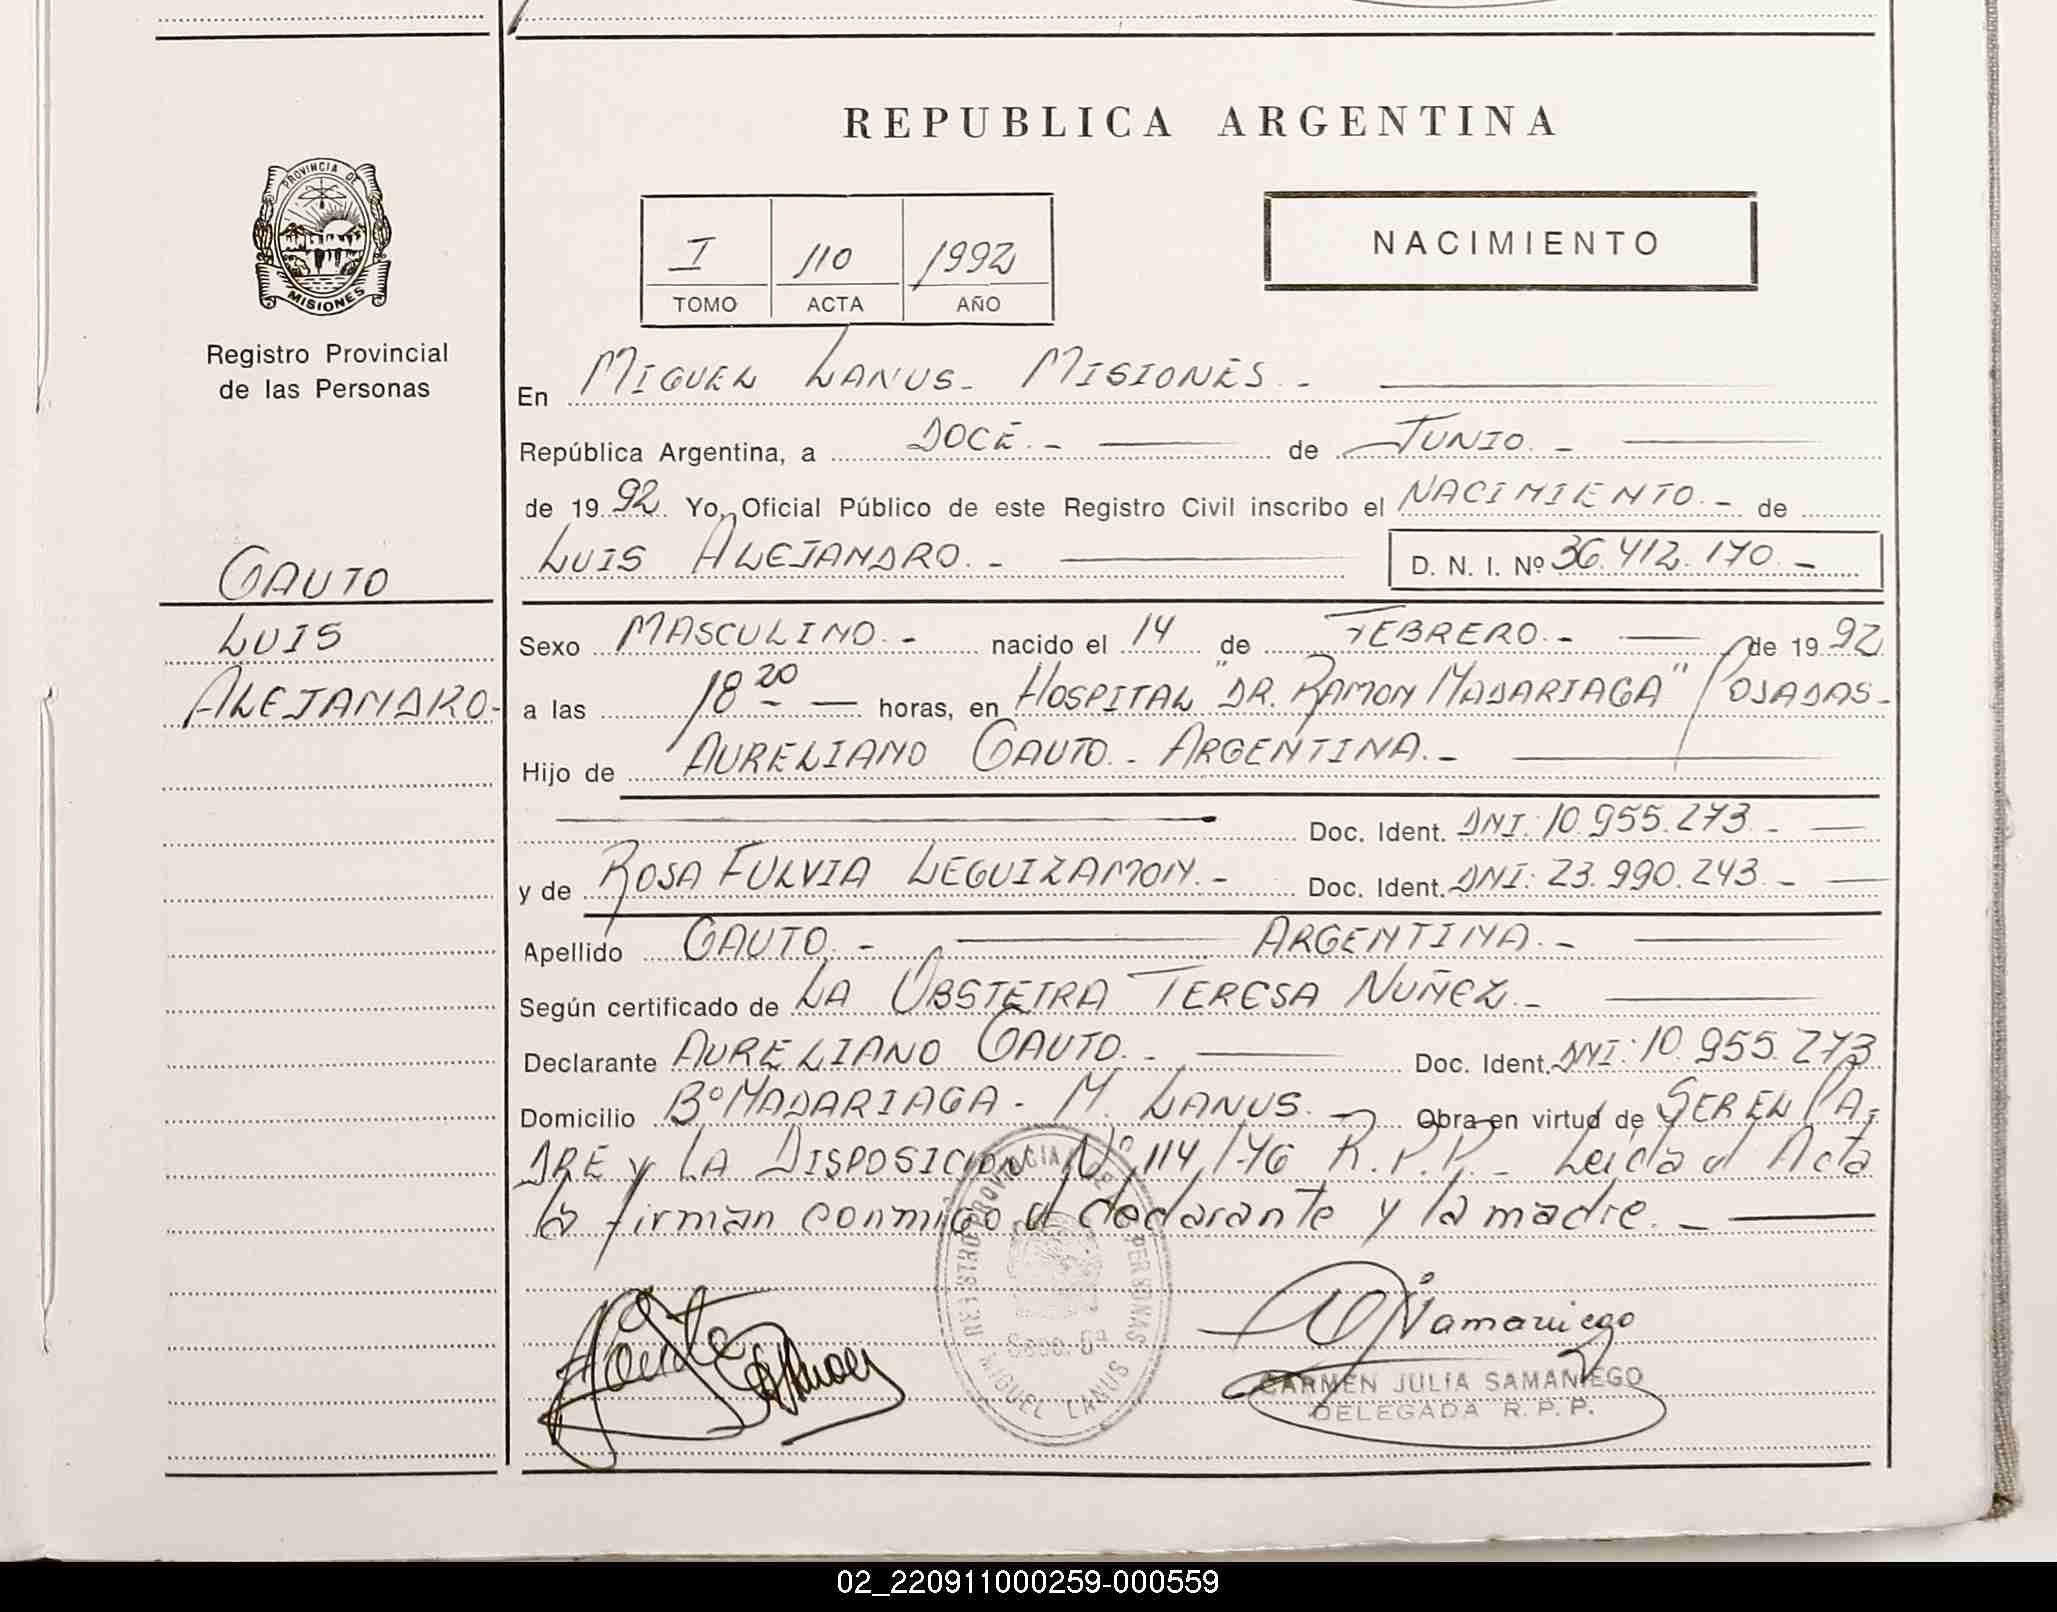 REPUBLICA ARGENTINA
PROVINCIA DE
MISIONES
Registro Provincial
de las Personas
I 110 1992
TOMO ACTA AÑO
NACIMIENTO
En MIGUEL LANUS - MISIONES. -
República Argentina, a DOCE. - de JUNIO. -
de 1992. Yo, Oficial Público de este Registro Civil inscribo el NACIMIENTO. - de
LUIS ALEJANDRO. - D. N. I. Nº 36.412.170. -
GAUTO
LUIS
ALEJANDRO-
Sexo MASCULINO. - nacido el 14 de FEBRERO. - de 1992
a las 18 20 - horas, en HOSPITAL "DR. RAMON MADARIAGA" POSADAS-
Hijo de AURELIANO GAUTO. - ARGENTINA. -
Doc. Ident. DNI: 10.955.273. -
y de ROSA FULVIA LEGUIZAMON. - Doc. Ident. DNI: 23.990.243. -
Apellido GAUTO. - ARGENTINA. -
Según certificado de LA OBSTETRA TERESA NUÑEZ. -
Declarante AURELIANO GAUTO. - Doc. Ident. DNI: 10.955.273
Domicilio Bº MADARIAGA - M. LANUS. - Obra en virtud de SER EL PA-
DRE y LA DISPOSICION Nº 114/76 R.P.P. - Leida el Acta
la firman conmigo el declarante y la madre. -
REGISTRO PROVINCIAL DE PERSONAS
MIGUEL LANUS
Samaniego
CARMEN JULIA SAMANIEGO
DELEGADA R.P.P.
02_220911000259-000559